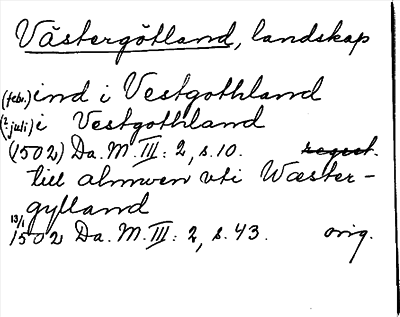 Västergötland, landskap
(febr.) ind i Vestgothland
(2 juli) i Vestgothland
(1502) Da. M. III: 2, s. 10. regest.
till almwen vti Wæster-
gylland
13/1
1502 Da. M. III: 2, s. 43. orig.